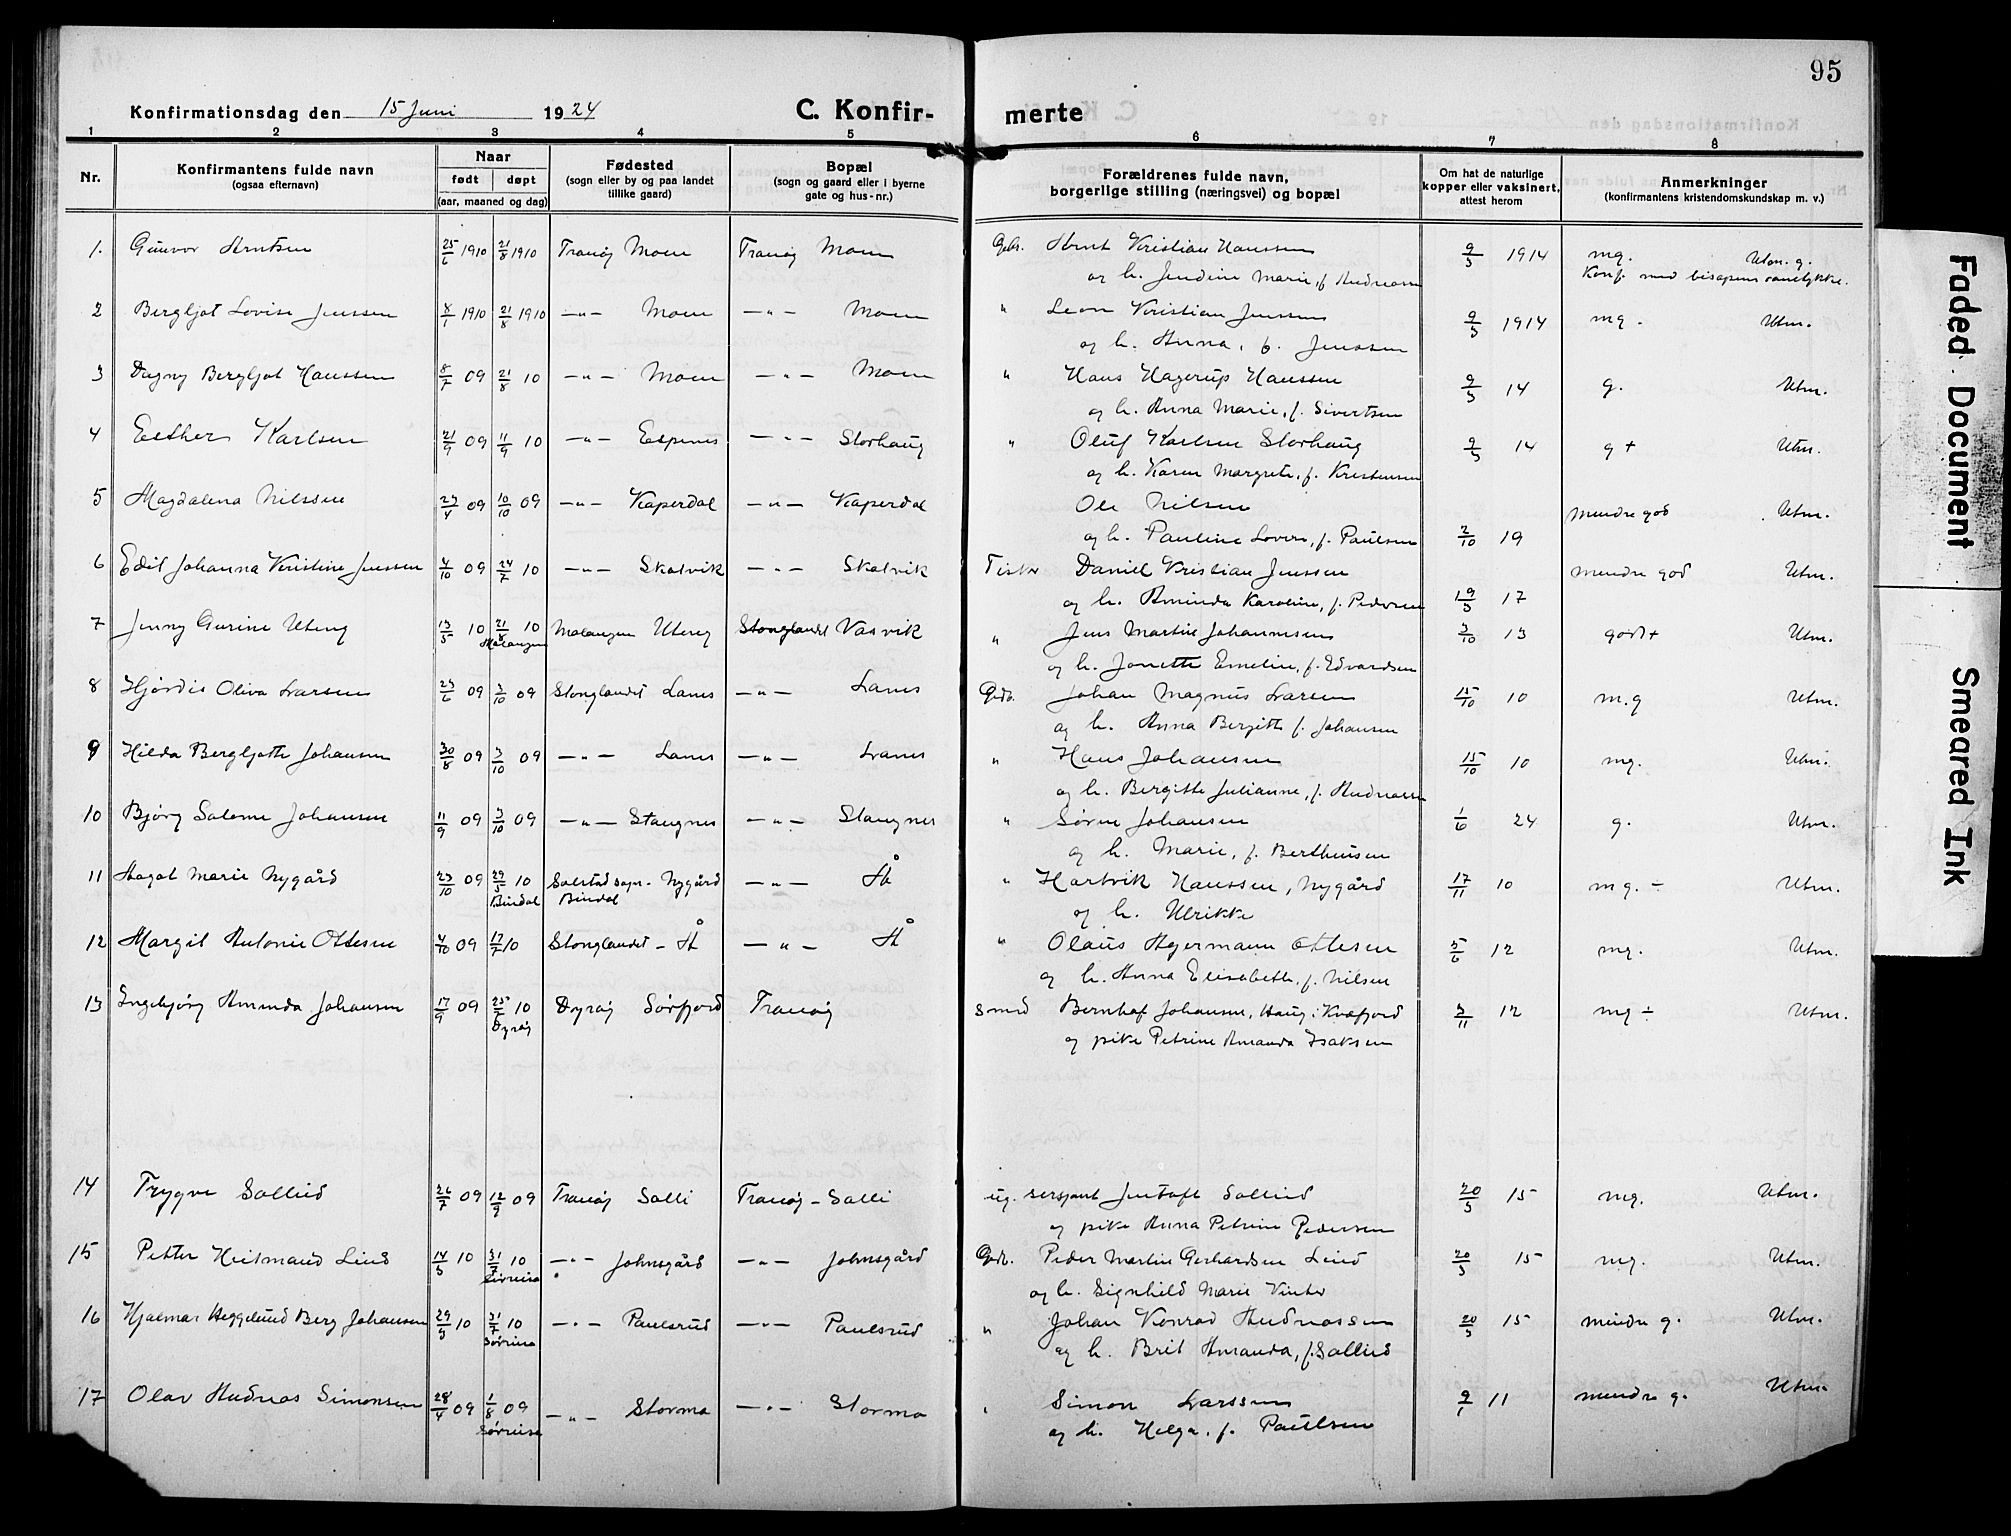 95
Konfirmationsdag den 15 Juni 1924 C. Konfir- merte
1 2 3 4 5 6 7 8
Nr. Konfirmantens fulde navn (ogsaa efternavn) Naar født døpt (aar, maaned og dag) Fødested (sogn eller by og paa landet tillike gaard) Bopæl (sogn og gaard eller i byerne gate og hus-nr.) Forældrenes fulde navn, borgerlige stilling (næringsvei) og bopæl Om hat de naturlige kopper eller vaksinert, attest herom Anmerkninger (konfirmantens kristendomskundskap m. v.)
1. Gunvor Arntsen 25/6 1910 21/8 1910 Tranøy Moen Tranøy Moen Gdbr. Arnt Kristian Hanssen 9/5 1914 mg. Utm. g.
og h. Jendine Marie, f. Andreassen Konf. med bispens samtykke.
2 Bergljot Lovise Jenssen 8/1 1910 21/8 1910 —"— Moen —"— Moen " Leon Kristian Jenssen 9/5 1914 mg. Utm.
og h. Anna, f. Jenssen
3 Dagny Bergljot Hanssen 8/7 09 21/8 10 —"— Moen —"— Moen " Hans Hagerup Hanssen 9/5 14 g. Utm.
og h. Anna Marie, f. Sivertsen
4 Esther Karlsen 21/9 09 11/9 10 —"— Espenes —"— Storhaug " Oluf Karlsen Storhaug 9/5 14 g+ Utm.
og h. Karen Margrete, f. Kristensen
5 Magdalena Nilssen 23/4 09 10/10 09 —"— Kaperdal —"— Kaperdal Ole Nilsen mindre god Utm.
og h. Pauline Lovise, f. Paulsen 2/10 19
6 Edit Johanna Kristine Jenssen 4/10 09 24/7 10 —"— Skatvik —"— Skatvik Fisker Daniel Kristian Jenssen mindre god Utm.
og h. Aminda Karoline, f. Pedersen 19/5 17
7 Jenny Gurine Uteng 13/5 10 21/8 10 Malangen Malangen Uteng Stonglandet Vasvik " Jens Martin Johannesen 3/10 13 god+ Utm.
og h. Jonette Emelie, f. Edvardsen
8 Hjørdis Oliva Larsen 23/6 09 3/10 09 Stonglandet Lanes —"— Lanes Gdb. Johan Magnus Larsen 15/10 10 m.g Utm.
og h. Anna Bergitte f. Johansen
9 Hilda Bergljotte Johansen 30/8 09 3/10 09 —"— Lanes —"— Lanes " Hans Johansen 15/10 10 mg. Utm.
og h. Bergitte Julianne, f. Andreassen
10 Bjørg Salome Johansen 11/9 09 3/10 09 —"— Stangnes —"— Stangnes " Søren Johansen 1/6 24 g. Utm.
og h. Marie, f. Berthusen
11 Hagot Marie Nygård 23/10 09 29/5 10 Bindal Solstad sogn - Nygård Bindal —"— Å " Hartvik Hanssen, Nygård 17/11 10 mg. ÷ Utm.
og h. Ulrikke
12 Margit Antonie Ottesen 4/10 09 17/7 10 Stonglandet - Å —"— Å " Olaus Hjermann Ottesen 5/6 12 mg. Utm.
og h. Anna Elisabeth, f. Nilsen
13 Ingebjørg Aminda Johansen 17/9 09 25/ 10 Dyrøy Dyrøy Sørfjord Tranøy smed Bernhof Johansen, Haug i Kvæfjord 3/11 12 mg ÷ Utm.
og pike Petrine Amanda Isaksen
14 Trygve Sollied 26/7 09 12/9 09 Tranøy Solli Tranøy - Solli ug. sersjant Justoft Sollied 20/5 15 mg. Utm.
og pike Anna Petrine Pedersen
15 Petter Heitmand Lind 14/5 10 31/7 10 Sørreisa —"— Johnsgård —"— Johnsgård Gdb. Peder Martin Gerhardsen Lind 20/5 15 mg. Utm.
og h. Signhild Marie Vinter
16 Hjalmar Heggelund Berg Johansen 29/3 10 31/7 10 Sørreisa —"— Paulsrud —"— Paulsrud " Johan Konrad Andreassen 20/5 15 mindre g. Utm.
og h. Brit Amanda, f. Sollied
17 Olav Andreas Simonsen 28/4 09 1/8 09 Sørreisa —"— Stormo —"— Stormo " Simon Larssen 9/1 11 mindre g. Utm.
og h. Helga, f. Paulsen
Faded Document
Smeared Ink